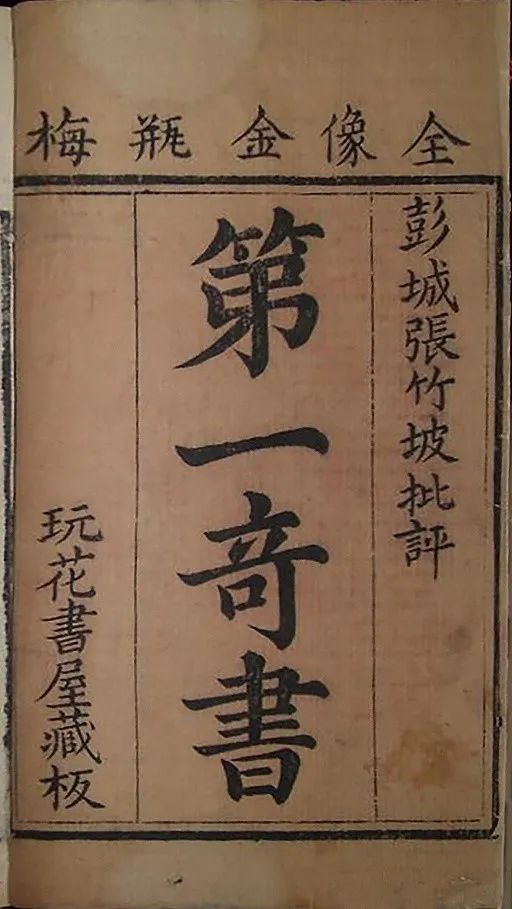 全像金瓶梅
彭城張竹坡批評
第一奇書
玩花書屋藏板